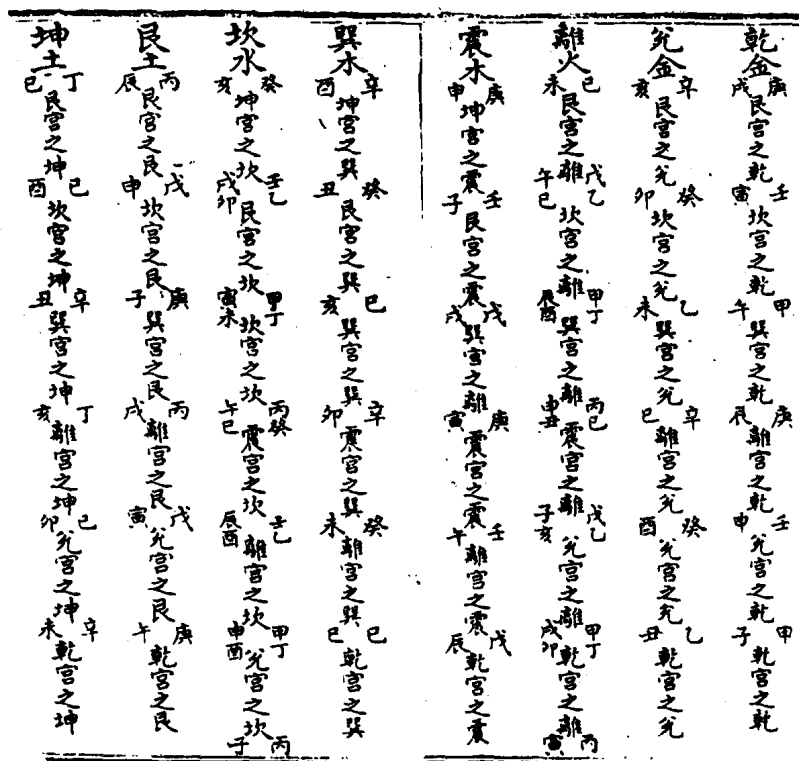 乾金庚戌艮宮之乾壬寅坎宮之乾甲午巽宮之乾庚辰離宮之乾壬申兊宮之乾甲子乾宮之乾
兊金辛亥艮宮之兊癸卯坎宮之兊乙未巽宮之兊辛巳離宮之兊癸酉兊宮之兊乙丑乾宮之兊
離火己未艮宮之離戊午乙巳坎宮之離甲辰丁酉巽宮之離丙申己丑震宮之離戊子乙亥兊宮之離甲戌丁卯乾宮之離丙寅
震木庚申坤宮之震壬子艮宮之震戊戌巽宮之離庚寅震宮之震壬午離宮之震戊辰乾宮之震
巽木辛酉坤宮之巽癸丑艮宮之巽己亥巽宮之巽辛卯震宮之巽癸未離宮之巽己巳乾宮之巽
坎水癸亥坤宮之坎壬戌乙卯艮宮之坎甲寅丁未坎宮之坎丙午癸巳震宮之坎壬辰乙酉離宮之坎甲申丁酉兊宮之坎丙子
艮土丙辰艮宮之艮戊申坎宮之艮庚子巽宮之艮丙戌離宮之艮戊寅兊宮之艮庚午乾宮之艮
坤土丁巳艮宮之坤己酉坎宮之坤辛丑巽宮之坤丁亥離宮之坤己卯兊宮之坤辛未乾宮之坤